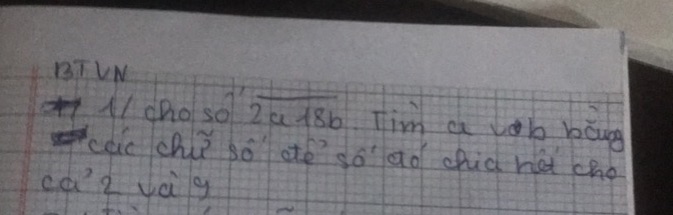 BTVN
1/ cho số 2a18b. Tìm a và b bằng
các chữ số để số đó chia hết cho
cả 2 và 9